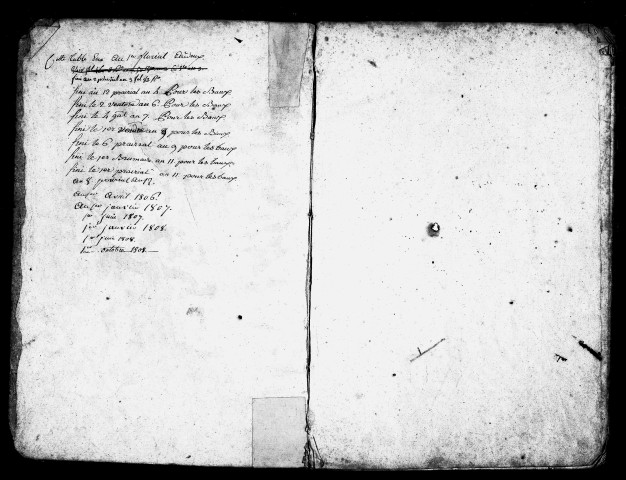 Cette table fini au 1er floreal
fini au 12 prairial an 4 Pour les Baux
fini le 2 ventose an 6 Pour les Baux
fini le 4 gal an 7 Pour les Baux
fini le 1er an 9 pour les Baux
fini le 6 prairial an 9 pour les baux
fini le 1er Brumaire an 11 pour les baux
fini le 1er prairial an 11 pour les baux
au 8 prairial an 12
au 1er Avril 1806
au 1er janvier 1807
1er juin 1807
1er janvier 1808
1er juin 1808
1er octobre 1808